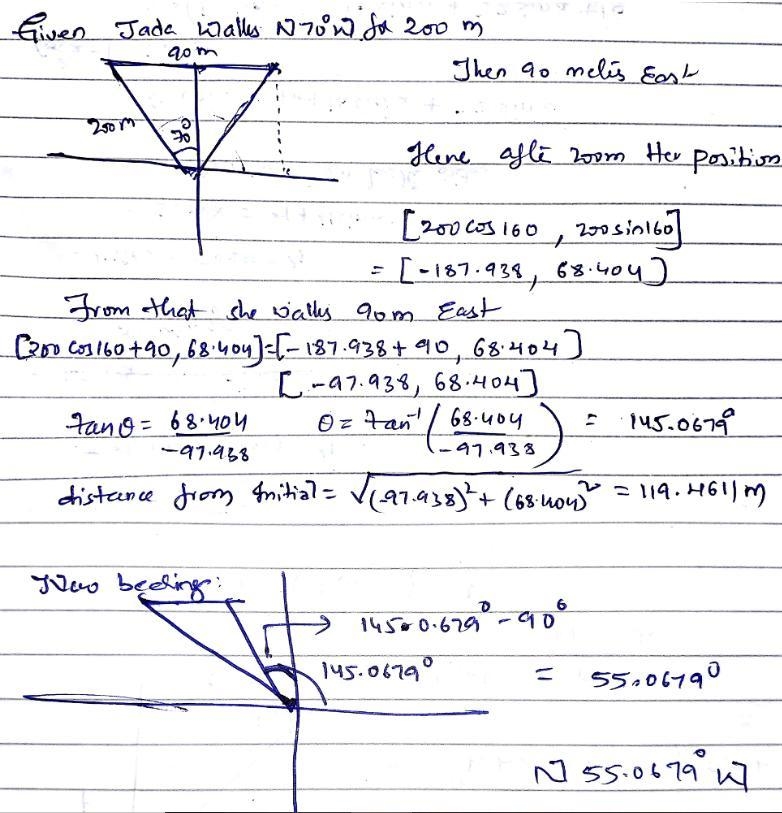 Given Jada walks N70°W for 200 m
90m
Then 90 meters East
200m
70°
Here after 200m Her position
[200 cos 160 , 200 sin 160]
= [-187.938, 68.404]
From that she walks 90m East
[200 cos 160 + 90, 68.404] = [-187.938 + 90, 68.404]
[-97.938, 68.404]
tan θ = 68.404 / -97.938   θ = tan⁻¹ (68.404 / -97.938) = 145.0679°
distance from Initial = √(-97.938)² + (68.404)² = 119.4611 m
145.0679° - 90°
145.0679°
= 55.0679°
N 55.0679° W